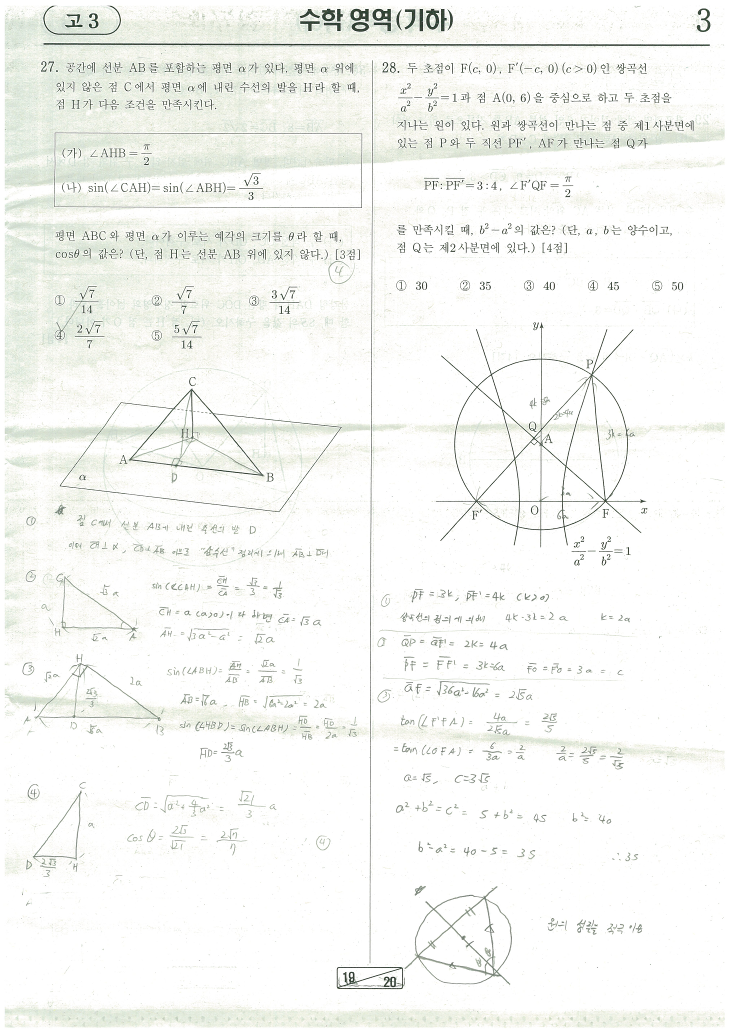 고 3
수학 영역(기하)
3
27. 공간에 선분 AB를 포함하는 평면 α가 있다. 평면 α 위에
있지 않은 점 C에서 평면 α에 내린 수선의 발을 H라 할 때,
점 H가 다음 조건을 만족시킨다.
(가) ∠AHB = π/2
(나) sin(∠CAH) = sin(∠ABH) = √3/3
평면 ABC와 평면 α가 이루는 예각의 크기를 θ라 할 때,
cosθ의 값은? (단, 점 H는 선분 AB 위에 있지 않다.) [3점]
④
① √7/14 ② √7/7 ③ 3√7/14
④ 2√7/7 ⑤ 5√7/14
C
H
A
B
D
α
① 점 C에서 선분 AB에 내린 수선의 발 D
이때 CH⊥α, CD⊥AB 이므로 "삼수선" 정리에 의해 AB⊥DH
② C √3a a H √2a A
sin(∠CAH) = CH/CA = √3/3 = 1/√3
CH = a (a>0)이라 하면 CA = √3a
AH = √(3a²-a²) = √2a
③ H 2a A D √6a B
sin(∠ABH) = AH/AB = √2a/AB = 1/√3
AB = √6a, HB = √(6a²-2a²) = 2a
sin(∠HBD) = sin(∠ABH) = HD/HB = HD/2a = 1/√3
HD = 2√3/3 a
④ C a D 2√3/3 H
CD = √(a²+4/3a²) = √21/3 a
cosθ = 2√3/√21 = 2√7/7 ④
28. 두 초점이 F(c, 0), F′(-c, 0) (c > 0)인 쌍곡선
x²/a² - y²/b² = 1과 점 A(0, 6)을 중심으로 하고 두 초점을
지나는 원이 있다. 원과 쌍곡선이 만나는 점 중 제1사분면에
있는 점 P와 두 직선 PF′, AF가 만나는 점 Q가
PF : PF′ = 3 : 4, ∠F′QF = π/2
를 만족시킬 때, b² - a²의 값은? (단, a, b는 양수이고,
점 Q는 제2사분면에 있다.) [4점]
① 30 ② 35 ③ 40 ④ 45 ⑤ 50
y
P
2k=4a
Q
A
3k=6a
3a
F′
O
F
x
6a
x²/a² - y²/b² = 1
① PF = 3k, PF′ = 4k (k>0)
쌍곡선의 정의에 의해 4k-3k = 2a k = 2a
② QP = QF′ = 2k = 4a
PF = FF′ = 3k = 6a FO = F′O = 3a = c
③ QF = √(36a²-16a²) = 2√5a
tan(∠F′FA) = 4a/2√5a = 2√5/5
= tan(∠OFA) = 6/3a = 2/a 2/a = 2√5/5 = 2/√5
a = √5, c = 3√5
a²+b² = c² = 5+b² = 45 b² = 40
b²-a² = 40-5 = 35 ∴ 35
원의 성질을 적극 이용
19
20